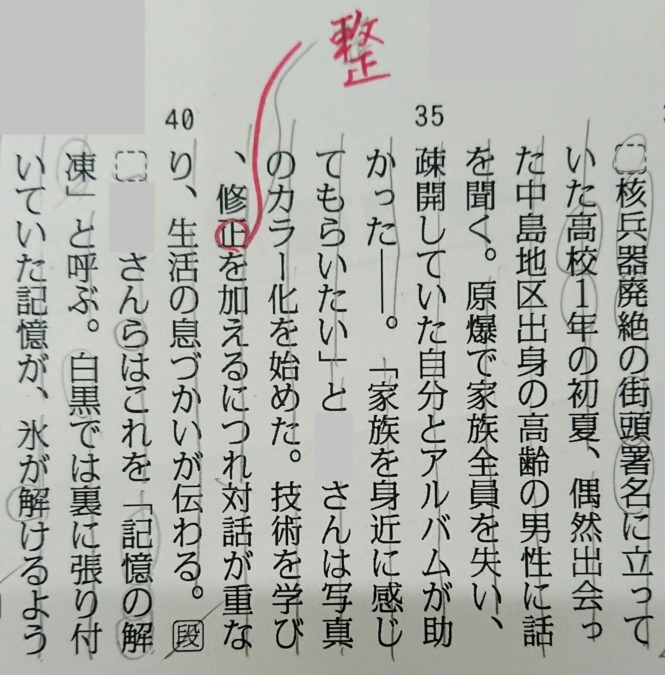 整
核兵器廃絶の街頭署名に立って
いた高校1年の初夏、偶然出会っ
た中島地区出身の高齢の男性に話
を聞く。原爆で家族全員を失い、
35
疎開していた自分とアルバムが助
かった――。「家族を身近に感じ
てもらいたい」と さんは写真
のカラー化を始めた。技術を学び
、修正を加えるにつれ対話が重な
40
り、生活の息づかいが伝わる。段
さんらはこれを「記憶の解
凍」と呼ぶ。白黒では裏に張り付
いていた記憶が、氷が解けるよう